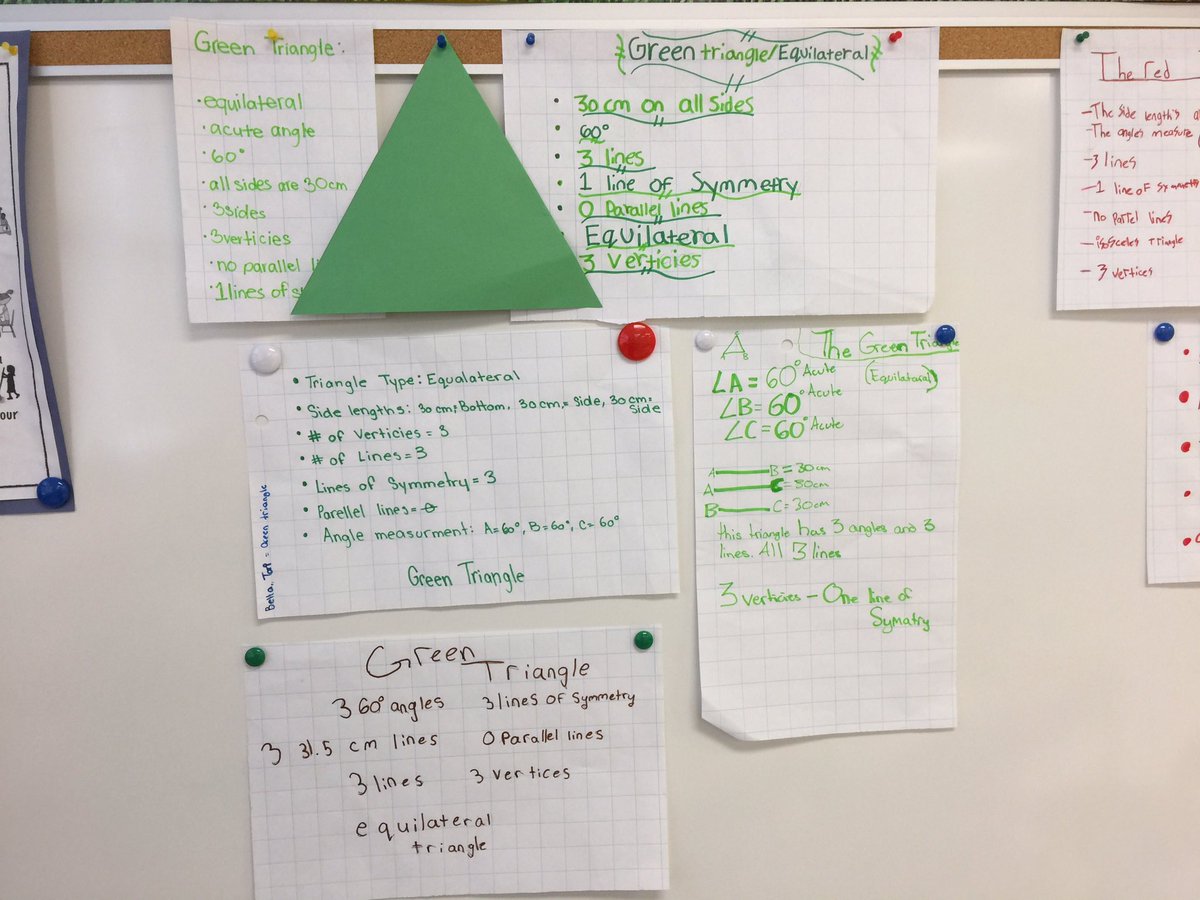 Green Triangle:
·equilateral
·acute angle
·60°
·all sides are 30cm
·3sides
·3verticies
·no parallel
·1lines of
Green triangle/Equilateral
• 30 cm on all sides
• 60°
• 3 lines
• 1 line of Symmetry
• 0 Parallel lines
Equilateral
3 Verticies
The red
-The side length's
-The angles measure
-3 lines
-1 line of symmetry
-no partel lines
-isosceles triangle
- 3 vertices
our
• Triangle Type: Equalateral
• Side lengths: 30 cm= Bottom, 30 cm,= side, 30 cm= side
• # of Verticies = 3
• # of Lines = 3
• Lines of Symmetry = 3
• Parellel lines = 0
• Angle measurment: A=60°, B=60°, C=60°
Green Triangle
Bella, = Green triangle
The Green Triangle
(Equilateral)
∠A = 60° Acute
∠B = 60° Acute
∠C = 60° Acute
A B = 30cm
A C = 30cm
B C = 30cm
this triangle has 3 angles and 3
lines. All 3 lines
3 verticies - One line of
Symatry
Green Triangle
3 60° angles 3 lines of Symmetry
3 31.5 cm lines 0 Parallel lines
3 lines 3 vertices
equilateral
triangle